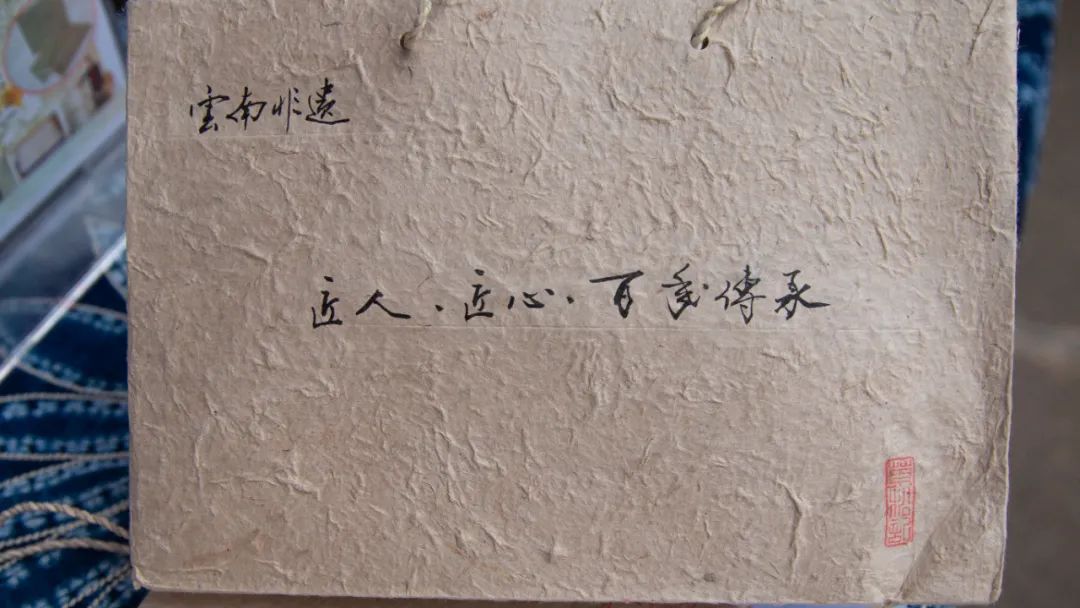 雲南非遗
匠人.匠心.百年傳承